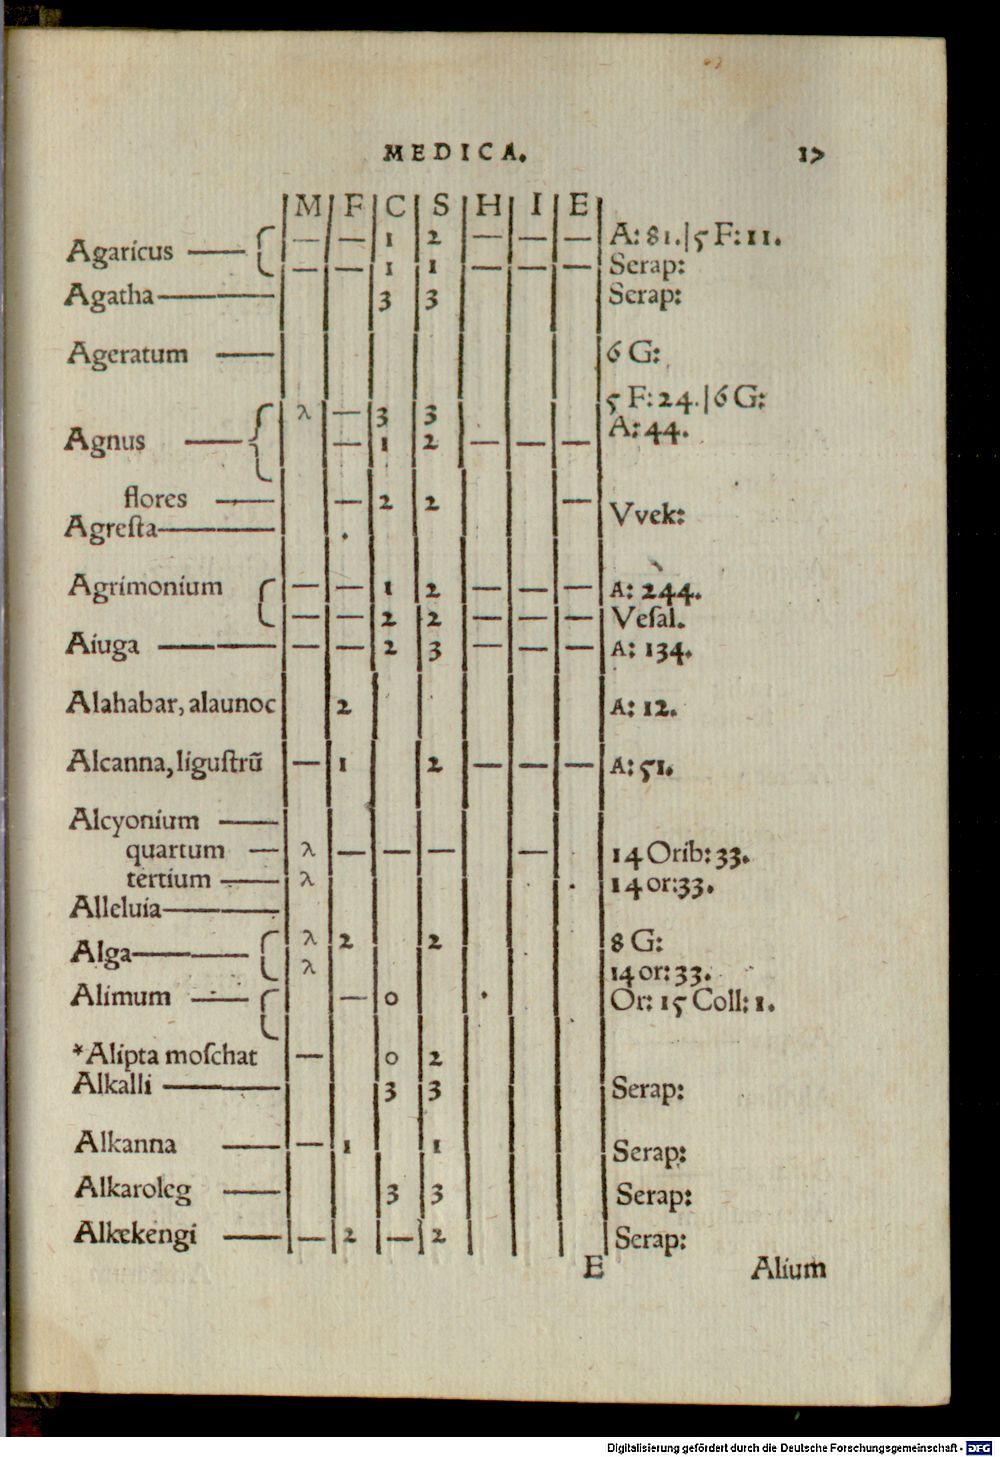 MEDICA. 17
M F C S H I E
Agaricus — — — 1 2 — — — A: 81.|5 F: 11.
— — 1 1 — — — Serap:
Agatha — 3 3 Serap:
Ageratum — 6 G:
5 F: 24.|6 G:
Agnus — λ — 3 3
— 1 2 — — — A: 44.
flores — — 2 2 — Vvek:
Agreſta —
Agrimonium — — 1 2 — — — A: 244.
— — 2 2 — — — Veſal.
Aiuga — — — 2 3 — — — A: 134.
Alahabar, alaunoc 2 A: 12.
Alcanna, liguſtrũ — 1 2 — — — A: 51.
Alcyonium —
quartum — λ — — — — 14 Orib: 33.
tertium — λ 14 or: 33.
Alleluia —
Alga — λ 2 2 8 G:
λ 14 or: 33.
Alimum — — 0 Or: 15 Coll: 1.
*Alipta moſchat — 0 2
Alkalli — 3 3 Serap:
Alkanna — — 1 1 Serap:
Alkaroleg — 3 3 Serap:
Alkekengi — — 2 — 2 Serap:
E Alium
Digitalisierung gefördert durch die Deutsche Forschungsgemeinschaft - DFG